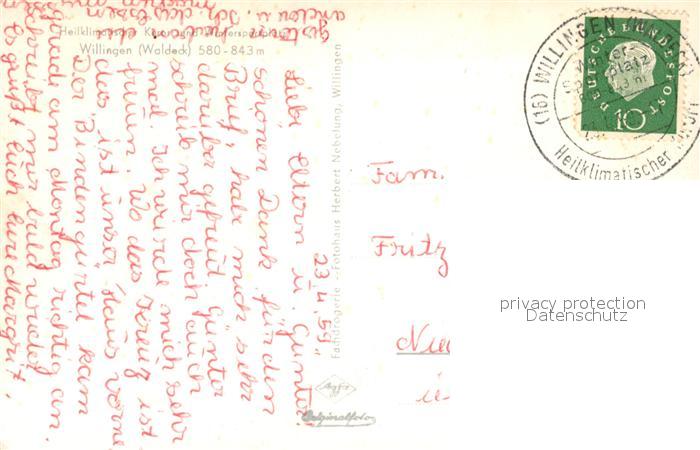 Heilklimatischer Kurort und Wintersportplatz
Willingen (Waldeck) 580-843 m
23.4.59
Liebe Eltern u. Günter
schönen Dank für den
Brief, habe mich sehr
darüber gefreut Günter
schreib mir doch auch
mal. Ich würde mich sehr
freuen. Wo das Kreuz ist
das ist unser Haus vorne
Der Bindengürtel kam
gerade am Montag richtig an.
Schreibt mir bald wieder
Es grüßt Euch Eure Margrit.
Fachdrogerie - Fotohaus Herbert Nebelung, Willingen
Agfa
Originalfoto
Fam.
Fritz
(16) WILLINGEN (WALDECK)
Heilklimatischer
DEUTSCHE BUNDESPOST
10
privacy protection
Datenschutz